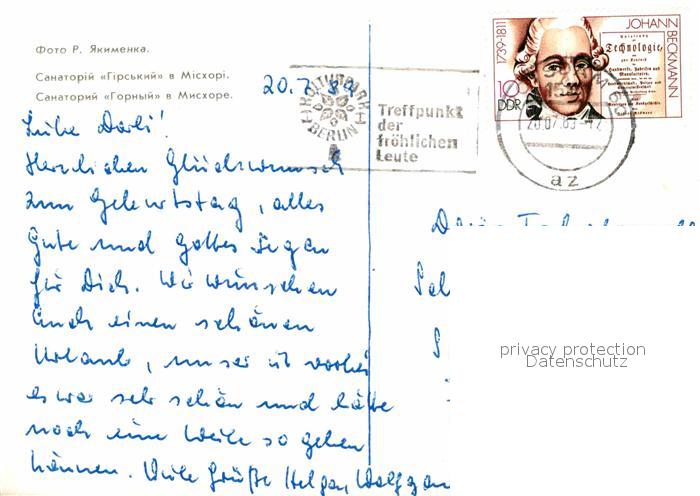 Фото Р. Якименка.
Санаторій «Гірський» в Місхорі.
Санаторий «Горный» в Мисхоре.
20.7.89
Liebe Doris!
Herzlichen Glückwunsch
zum Geburtstag, alles
Gute und Gottes Segen
für Dich. Wir wünschen
Euch einen schönen
Urlaub, unser ist vorbei
es war sehr schön und hätte
noch eine Weile so gehen
können. Viele Grüße Helga, Wolfgang
KULTURPARK
BERLIN
Treffpunkt
der
fröhlichen
Leute
1739-1811
JOHANN
BECKMANN
Technologie,
10
DDR
az
Doris
privacy protection
Datenschutz